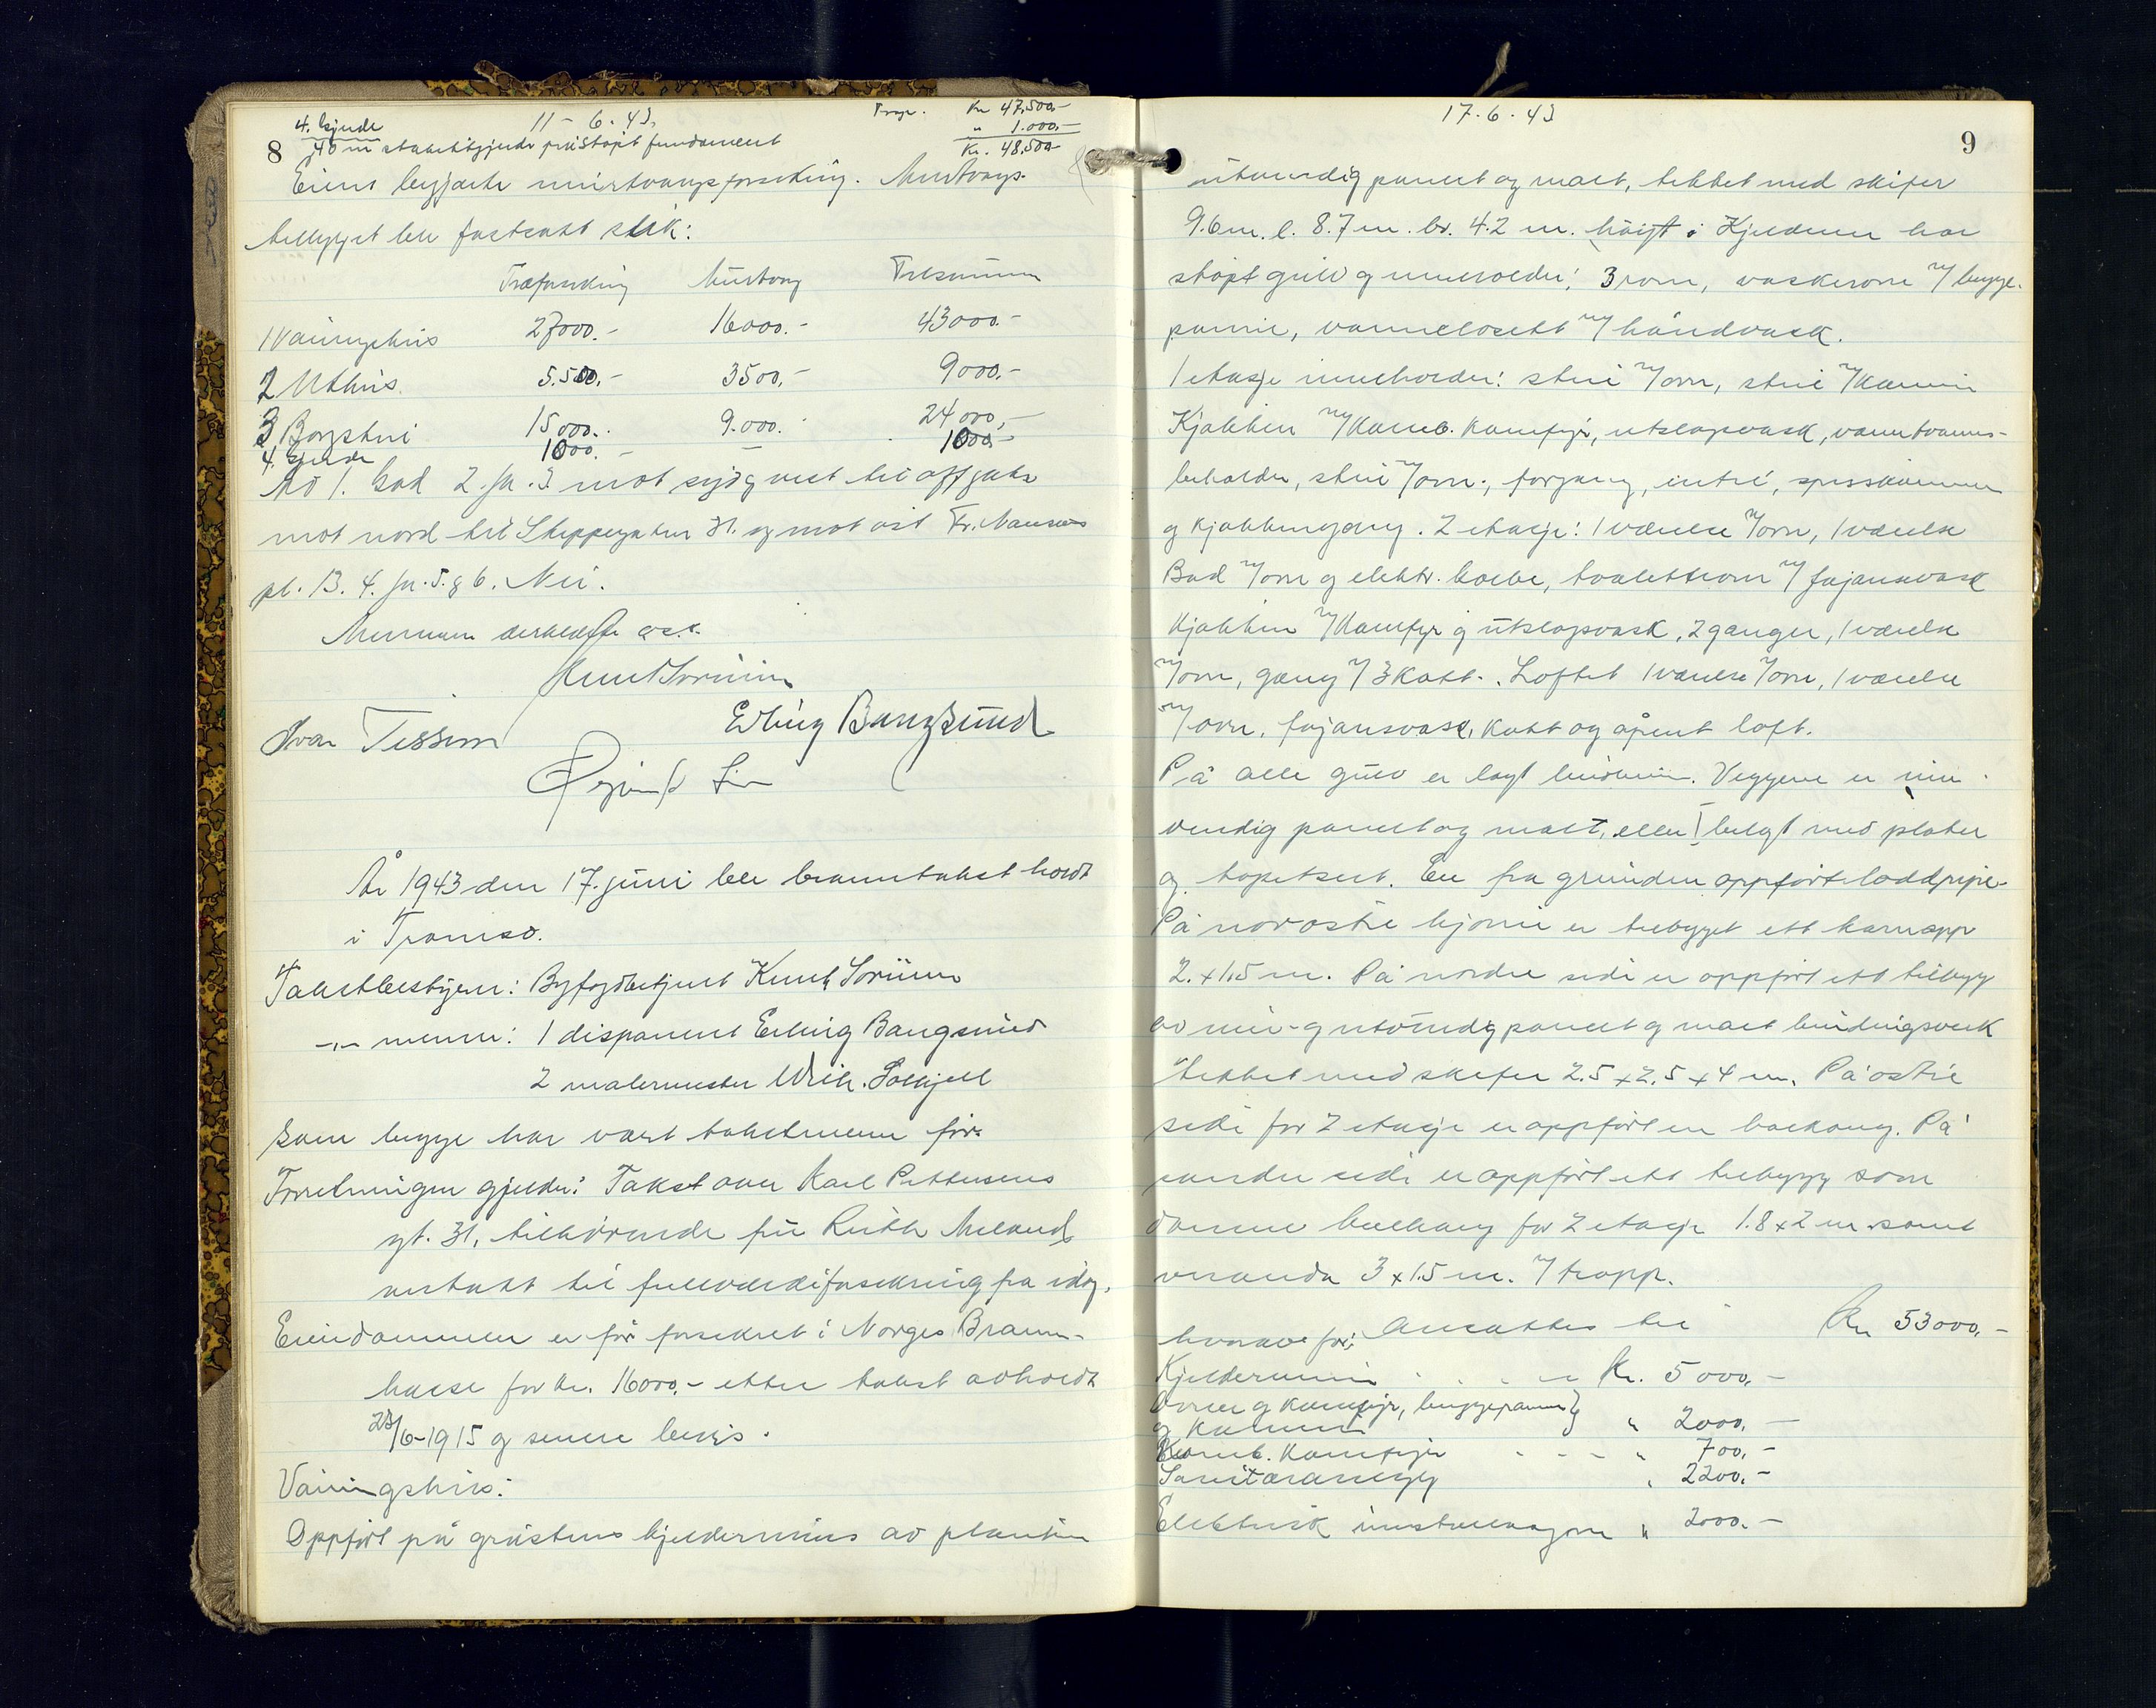 11-6-43.
Kr 47,500.-
" 1.000.-
Kr. 48.500.-
4. Gjerde
8
40 m stakittgjerde på støpt fundament
Eieren begjærte murtvangsforsikring. Murtvangs-
tillegget ble fastsatt slik:
Træforsikring Murtvang Totalsum
1 Våningshus 27000.- 16000.- 43000.-
2 Uthus. 5.500.- 3500.- 9000.-
3 Borgstui 15000.- 9.000.- 24000,-
4. Gjerde 1000.- — 1000.-
Ad 1. God 2. Ja. 3 mot syd og vest til off. gate
mot nord til Skippergaten 31. og mot øst Fr. Nansens
pl. 13. 4. Ja. 5. & 6. Nei.
Mennene
Knut Sørum
Ivar Tessem Erling Bangsund
År 1943 den 17. juni ble branntakst holdt
i Tromsø.
Takstbestyrer: Byfogdbetjent Knut Sørum
-"- menn: 1 disponent Erling Bangsund
2 malermester Wilh. Solhjell
som begge har vært takstmenn før.
Forretningen gjelder: Takst over Karl Pettersens
gt. 31, tilhørende fru Ruth Meland
til fullverdiforsikring fra idag.
Eiendommen er før forsikret i Norges Brann-
kasse for kr. 16000,- etter takst avholdt
23/6-1915 og senere bevis.
Våningshus:
Oppført på gråstens kjeldermur av planker
17.6.43
9
utvendig panelt og malt, tekket med skifer
9.6 m. l. 8.7 m. br. 4.2 m. høigt. Kjelderen har
støpt gulv og inneholder: 3 rom, vaskerom m/ brygge-
panne, vannclosett m/ håndvask.
1 etasje inneholder: stue m/ovn, stue m/kamin
Kjøkken m/komb. komfyr, utslagsvask, varmtvanns-
beholder, stue m/ovn., forgang, entré, spiskammer
og kjøkkengang. 2 etasje: 1 værelse m/ovn, 1 værelse
Bad m/ovn og elektr. kolbe, toalettrom m/ fajansevask
Kjøkken m/komfyr og utslagsvask, 2 ganger, 1 værelse
m/ovn, gang m/ 3 kott. Loftet 1 værelse m/ovn, 1 værelse
m/ovn, fajansvask, kott og åpent loft.
På alle gulv er lagt linoleum. Veggene er inn-
vendig panelt og malt, eller belgt med plater
og tapetsert. En fra grunnen oppført loddpipe.
På nordøstre hjørne er tilbygget ett karnapp
2. x 1.5 m. På nordre side er oppført ett tilbygg
av inn- og utvendig panelt og malt bindingsverk
tekket med skifer 2.5 x 2.5 x 4 m. På østre
side for 2 etasje er oppført en balkong. På
søndre side er oppført ett tilbygg som
danner balkong for 2 etasje 1.8 x 2 m. samt
veranda 3 x 1.5 m. m/ trapp.
Ansattes til Kr 53000,-
hvorav for:
Kjeldermur Kr. 5000,-
Ovner og komfyr, bryggepanne
og kamin " 2000,-
Komb. komfyr " 700,-
Sanitæranlegg " 2200,-
Elektrisk installasjon " 2000.-